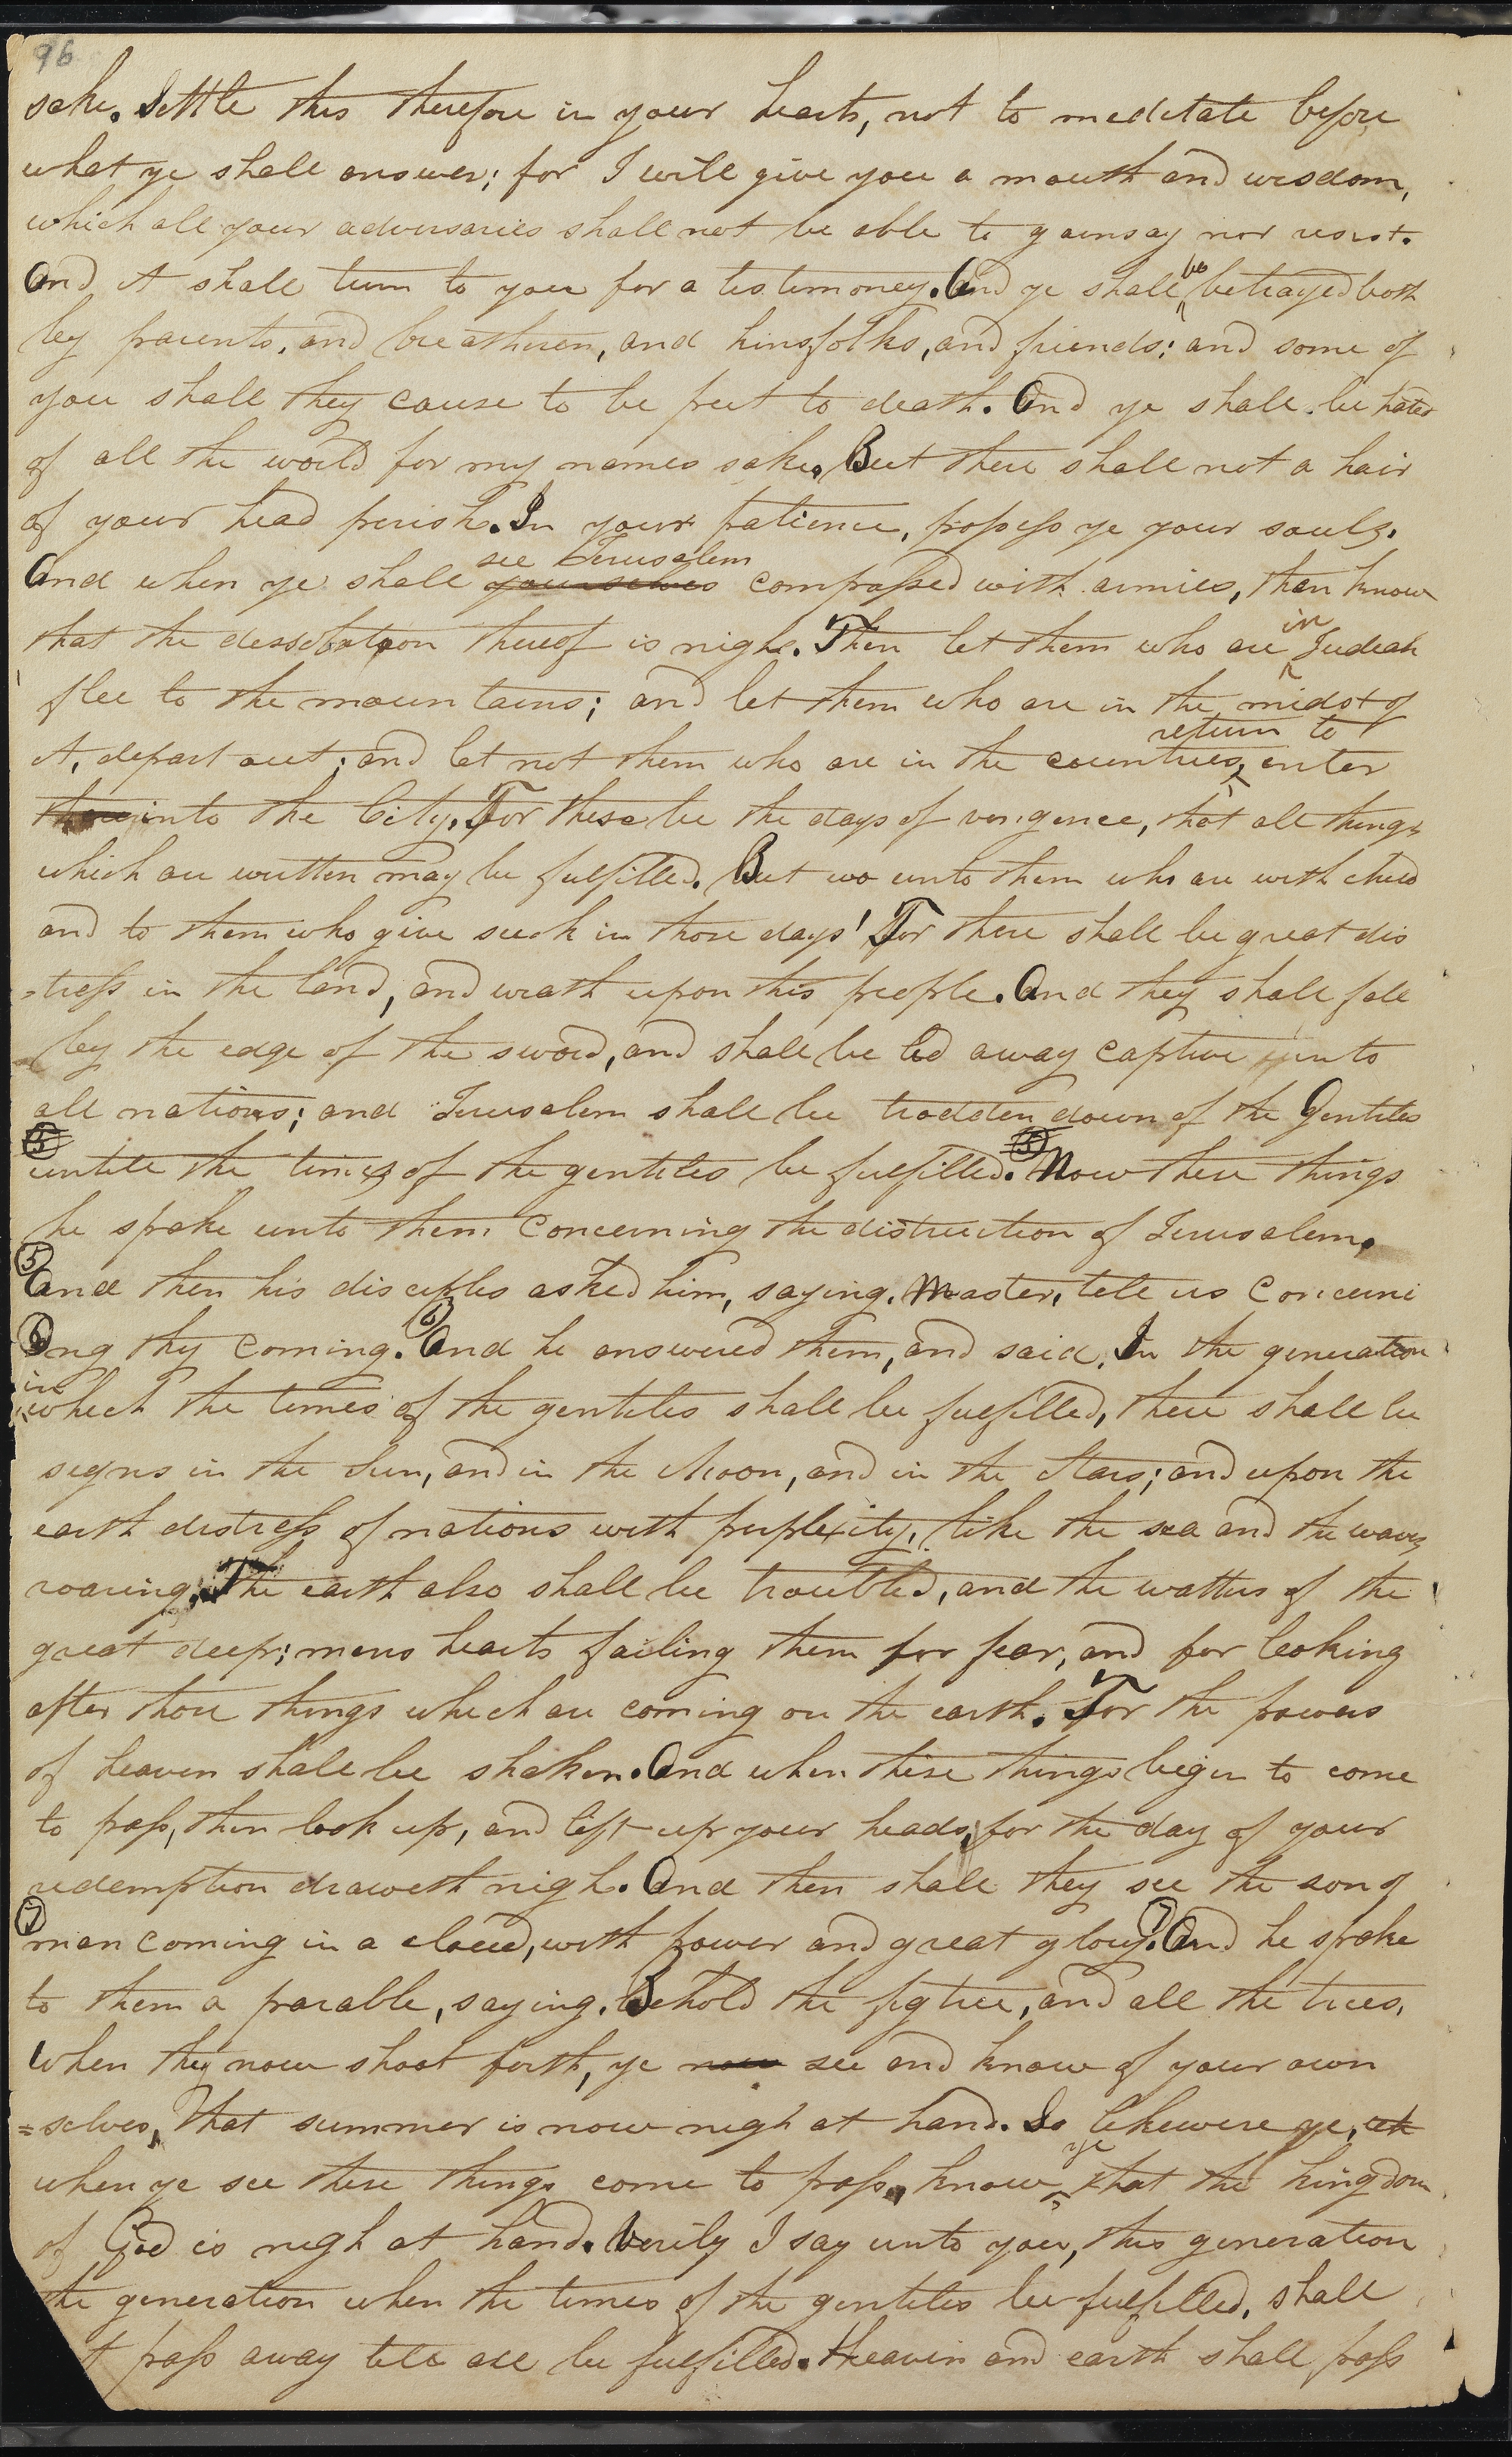 96
sake. Settle this therefore in your hearts, not to meditate before
what ye shall answer; for I will give you a mouth and wisdom,
which all your adversaries shall not be able to gainsay nor resist.
And it shall turn to you for a testimoney. And ye shall be betrayed both
by parents, and breatheren, and kinsfolks, and friends; and some of
you shall they cause to be put to death. And ye shall be hated
of all the world for my names sake. But there shall not a hair
of your head perish. In your patience, possess ye your souls.
see Jerusalem
And when ye shall yourselves compassed with armies, then know
that the dessolation thereof is nigh. Then let them who are in Judeah
flee to the mountains; and let them who are in the midst of
return to
it, depart out; and let not them who are in the countries, enter
into the City. For these be the days of vengence, that all things
which are written may be fulfilled. But wo unto them who are with child
and to them who give suck in those days! For there shall be great dis
=tress in the land, and wrath upon this people. And they shall fall
by the edge of the sword, and shall be led away captive unto
all nations; and Jerusalem shall be trodden down of the Gentiles
5 5
untill the times of the gentiles be fulfilled. Now these things
he spoke unto them concerning the distruction of Jerusalem.
5
And then his disciples asked him, saying, Master, tell us concerni
6 6
ng thy coming. And he answered them, and said, In the generation
in
which the times of the gentiles shall be fulfilled, there shall be
signs in the Sun, and in the Moon, and in the Stars; and upon the
earth distress of nations with perplexity, like the sea and the waves
roaring. The earth also shall be troubled, and the watters of the
great deep; mens hearts failing them for fear, and for looking
after those things which are coming on the earth. For the powers
of heaven shall be shaken. And when these things begin to come
to pass, then look up, and lift up your heads, for the day of your
redemption draweth nigh. And then shall they see the son of
7 7
man coming in a cloud, with power and great glory. And he spoke
to them a parable, saying. Behold the fig tree, and all the trees,
when they now shoot forth, ye now see and know of your own
=selves, that summer is now nigh at hand. So likewise ye,
when ye see these things come to pass, know ye that the kingdom
of God is nigh at hand. Verily I say unto you, this generation
the generation when the times of the gentiles be fulfilled, shall
t pass away till all be fulfilled. Heaven and earth shall pass